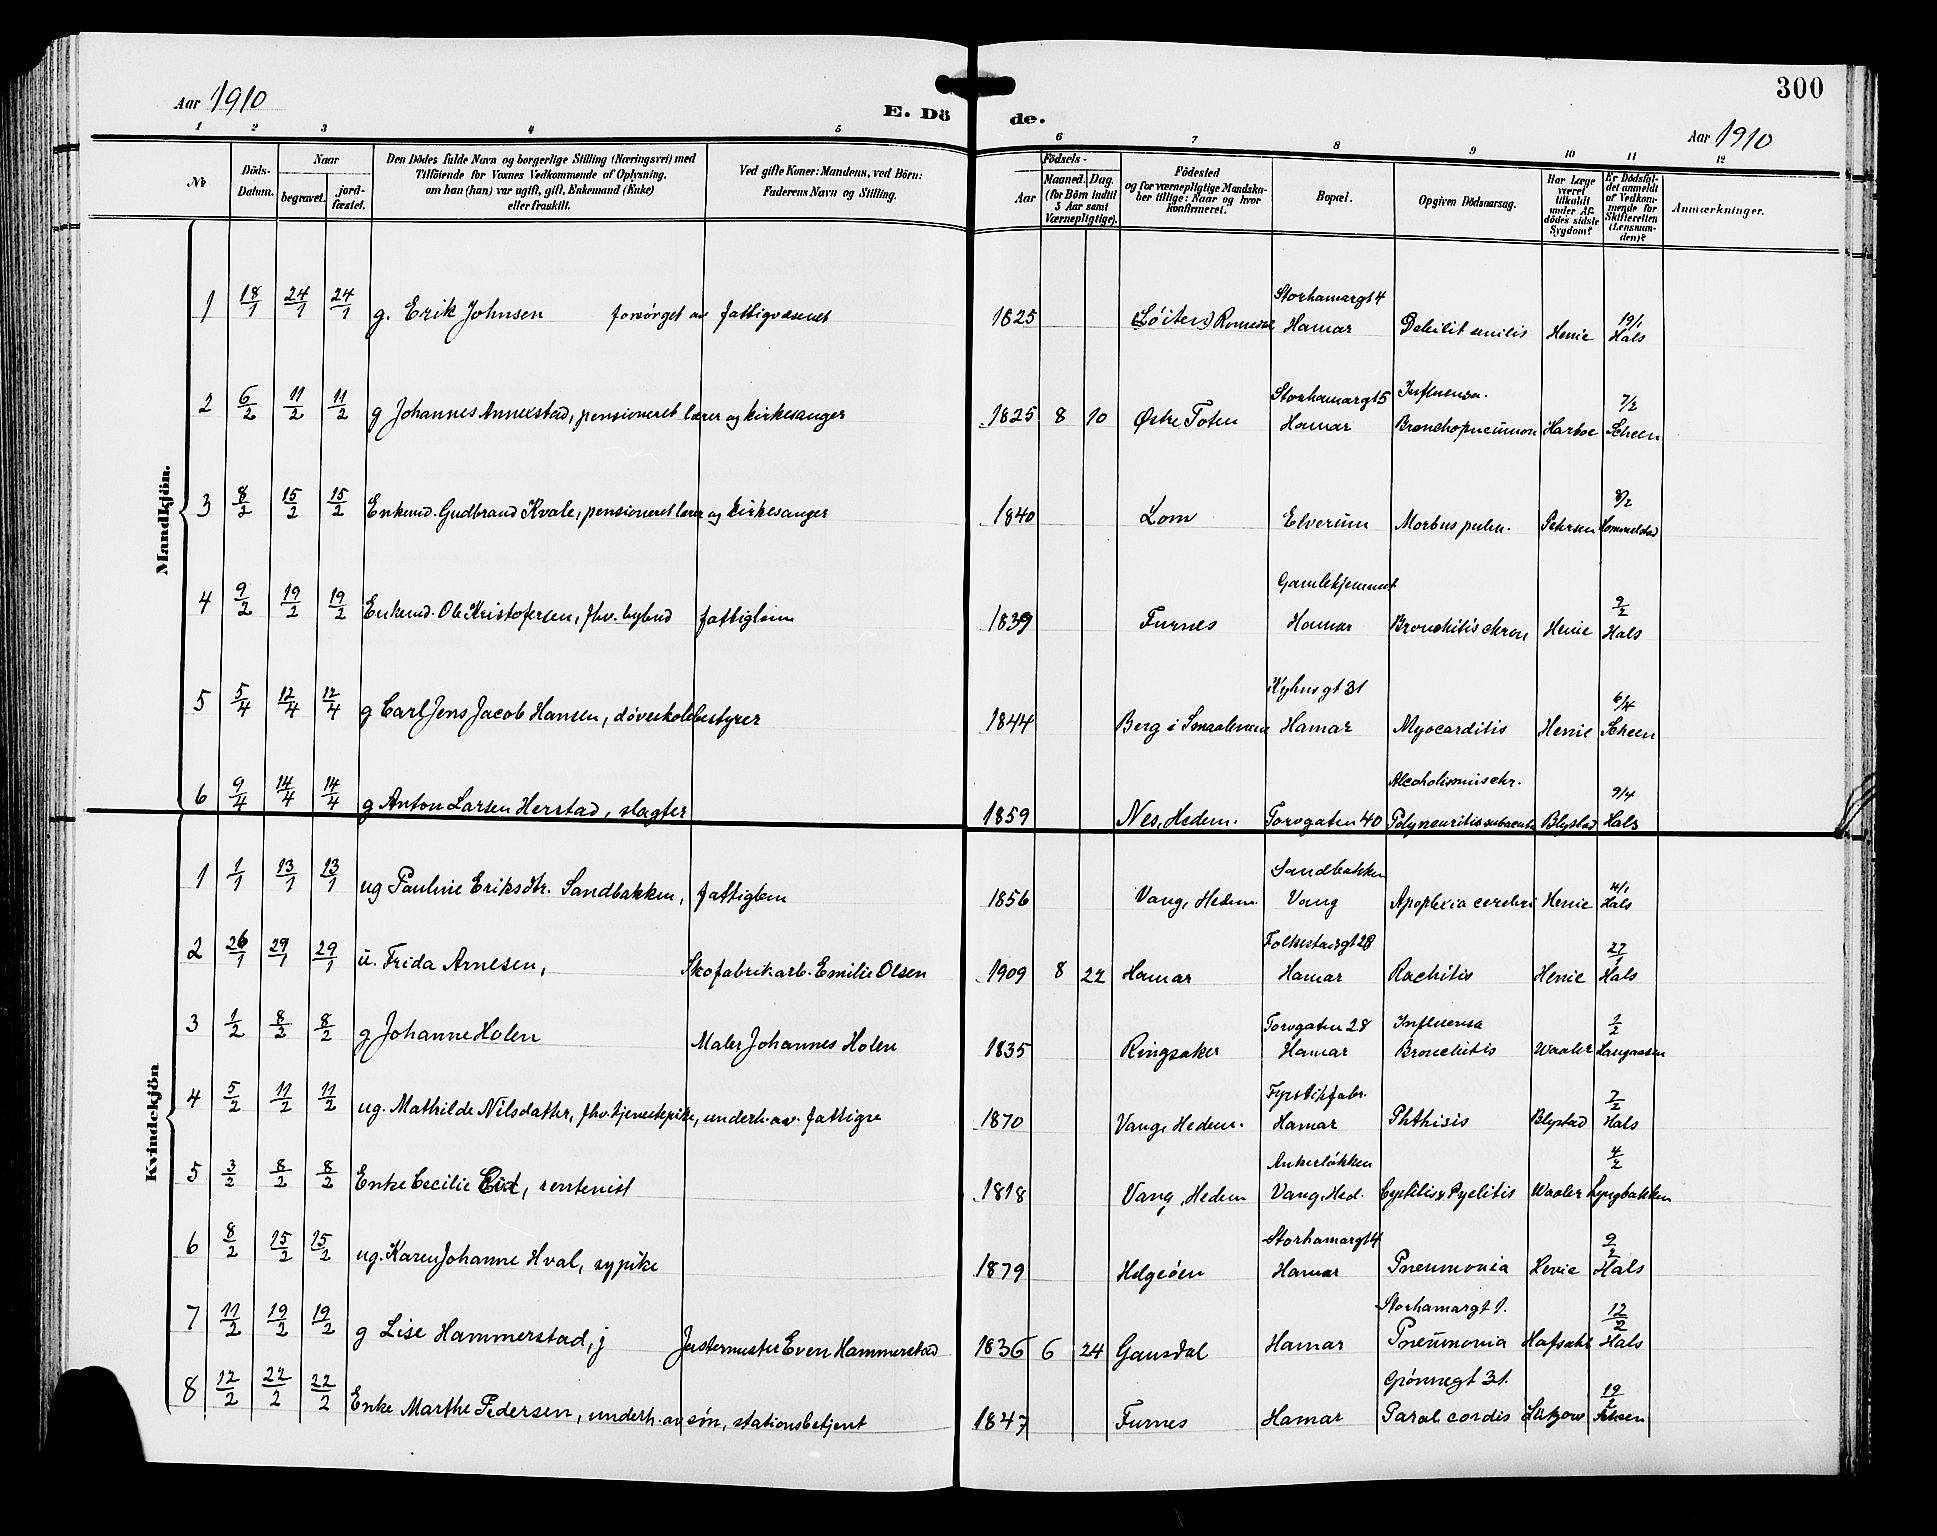 300
Aar 1910
E. Dö de.
Aar 1910
1 2 3 4 5 6 7 8 9 10 11 12
Nr
Döds-Datum.
Naar
begravet.
jord-fæstet.
Den Dödes fulde Navn og borgerlige Stilling (Næringsvei) med
Tilföiende for Voxnes Vedkommende af Oplysning,
om han (hun) var ugift, gift, Enkemand (Enke)
eller fraskilt.
Ved gifte Koner: Mandens, ved Börn:
Faderens Navn og Stilling.
Födsels-
Aar
Maaned. Dag.
(for Börn indtil
5 Aar samt
Værnepligtige).
Födested
og for værnepligtige Mandska-
ber tillige: Naar og hvor
konfirmeret.
Bopæl.
Opgiven Dödsaarsag.
Har Læge
været
tilkaldt
under Af-
dödes sidste
Sygdom?
Er Dödsfal-
det anmeldt
af Vedkom-
mende for
Skifteretten
(Lensman-
den)?
Anmærkninger.
Mandkjön.
1 18/1 24/1 24/1 g. Erik Johnsen forsørget av fattigvæsenet 1825 (Løiten) Romedal Storhamargt 4 Hamar Debilit senilis Henie 19/1 Hals
2 6/2 11/2 11/2 g Johannes Annexstad, pensioneret lærer og kirkesanger 1825 8 10 Østre Toten Storhamargt 5 Hamar Influensa. Bronchopneumon Harboe 7/2 Scheen
3 8/2 15/2 15/2 Enkemd. Gudbrand Kvale, pensioneret lærer og kirkesanger 1840 Lom Elverum Morbus pulm. Petersen 8/2 Hommelstad
4 9/2 19/2 19/2 Enkemd. Ole Kristofersen, fhv. bybud fattiglem 1839 Furnes Gamlehjemmet Hamar Bronchitis chron Henie 9/2 Hals
5 5/4 12/4 12/4 g Carl Jens Jacob Hansen, døveskolebestyrer 1844 Berg i Smaalenene Kyhnsgt 31 Hamar Myocarditis Henie 6/4 Scheen
6 9/4 14/4 14/4 g Anton Larsen Herstad, slagter 1859 Nes, Hedem. Torvgaten 40 Alcoholismus chr. Polyneuritis subacuta Blystad 9/4 Hals
Kvindekjön
1 1/1 13/1 13/1 ug Pauline Eriksdtr. Sandbakken, fattiglem 1856 Vang, Hedem. Sandbakken Vang Apoplexia cerebri Henie 4/1 Hals
2 26/1 29/1 29/1 u. Frida Arnesen, Skofabrikarb. Emilie Olsen 1909 8 22 Hamar Folkestadgt 28 Hamar Rachitis Henie 27/1 Hals
3 1/2 8/2 8/2 g Johanne Holen Maler Johannes Holen 1835 Ringsaker Torvgaten 28 Hamar Influensa Bronchitis Waaler 1/2 Langaasen
4 5/2 11/2 11/2 ug. Mathilde Nilsdatter, fhv. tjenestepike, underh. av fattigv 1870 Vang, Hedem. Fyrstikfabr. Hamar Phthisis Blystad 7/2 Hals
5 3/2 8/2 8/2 Enke Cecilie Eid, rentenist 1818 Vang, Hedem Ankerløkken Vang, Hed. Cystitis & Pyelitis Waaler 4/2 Lyngbakken
6 8/2 15/2 15/2 ug. Karen Johanne Hval, sypike 1879 Helgeøen Storhamargt 4 Hamar Pneumonia Henie 9/2 Hals
7 11/2 19/2 19/2 g Lise Hammerstad, j Justermester Even Hammerstad 1836 6 24 Gausdal Storhamargt 1. Hamar Pneumonia Hafsahl 12/2 Hals
8 12/2 22/2 22/2 Enke Marthe Pedersen, underh. av søn, stationsbetjent 1847 Furnes Grønnegt 31. Hamar Paral. cordis Lützow 19/2 Scheen